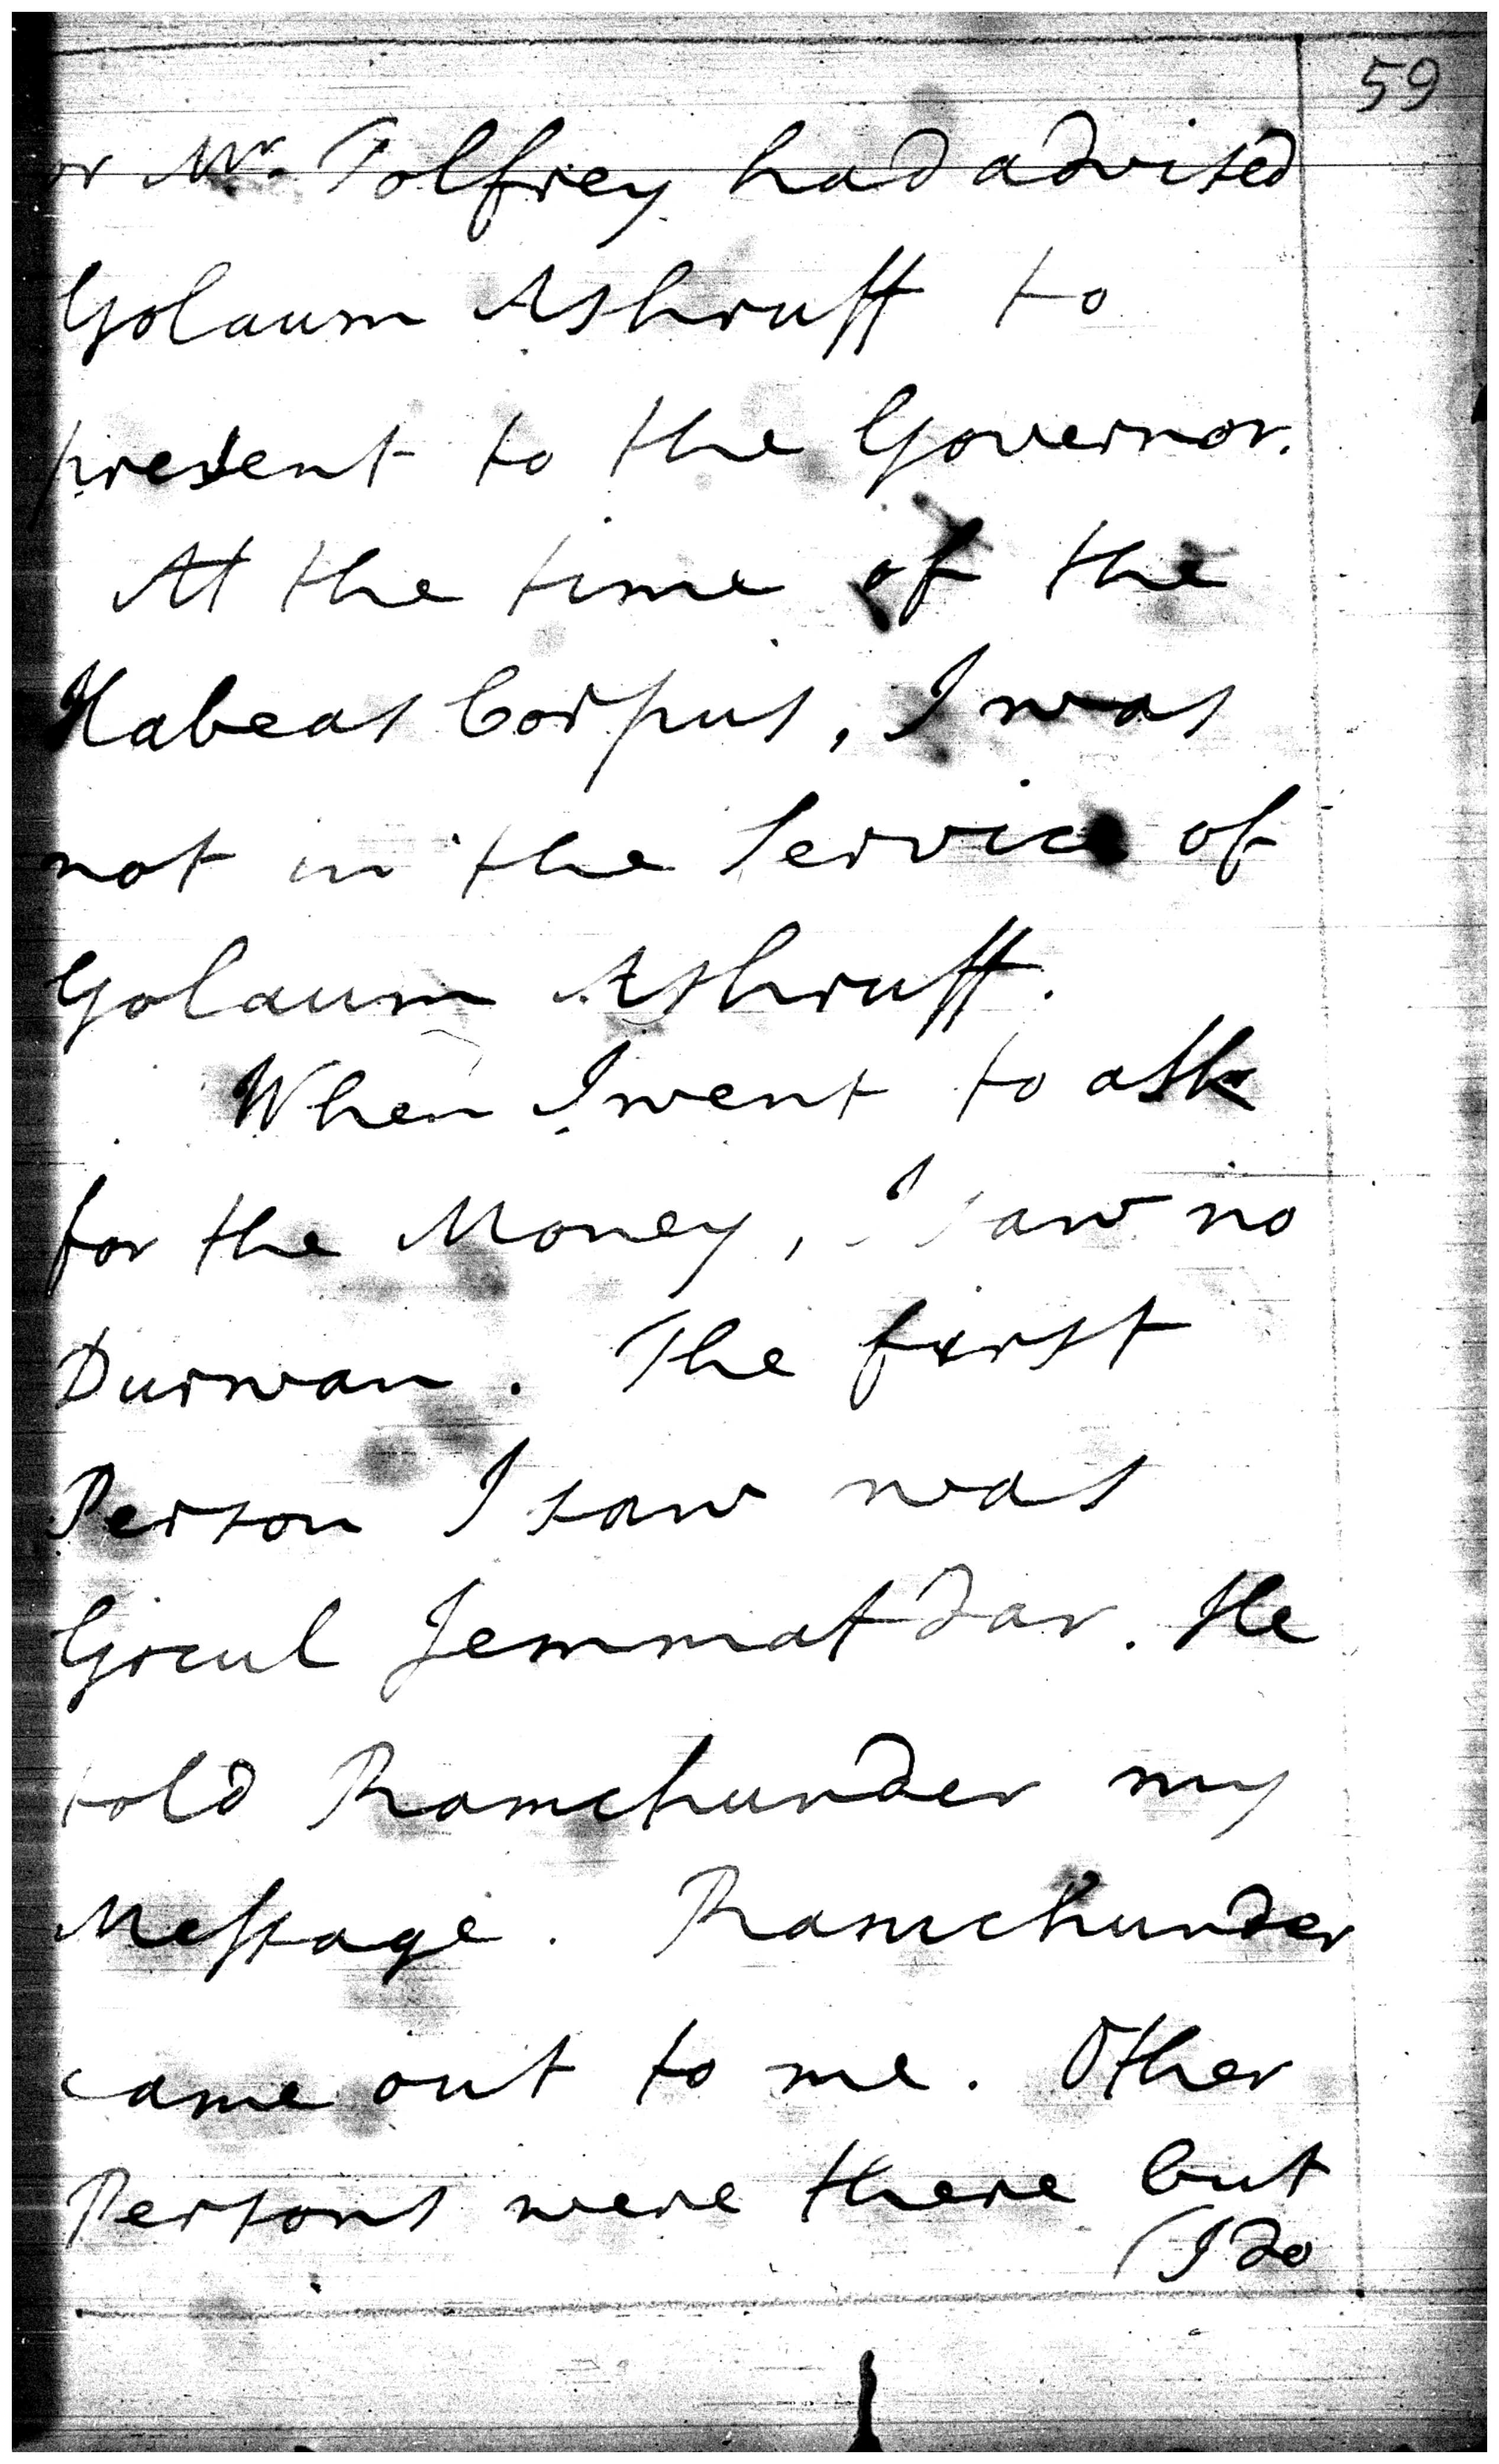 59
or Mr. Tolfrey had advised
Golaum Ashruff to
present to the Governor.
At the time of the
Habeas Corpus, I was
not in the Service of
Golaum Ashruff.
When I went to ask
for the Money, I saw no
Durwan. The first
Person I saw was
Gocul Jemmatdar. He
told Ramchunder my
Message. Ramchunder
came out to me. Other
Persons were there but
(I do